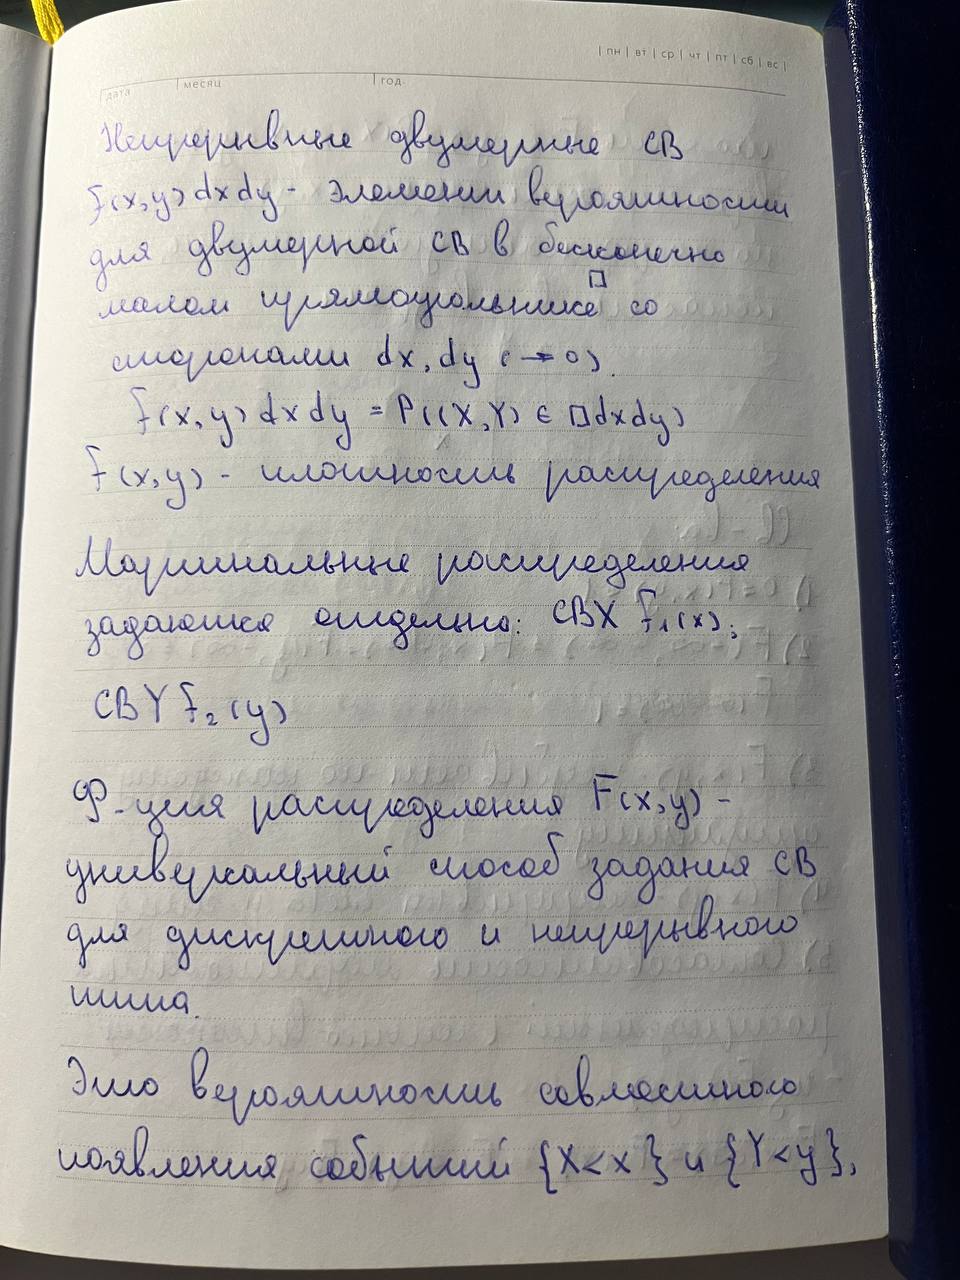 | пн | вт | ср | чт | пт | сб | вс |
дата | месяц | год
Непрерывные двумерные СВ
f(x,y)dxdy - элемент вероятности
для двумерной СВ в бесконечно
малом прямоугольнике □ со
сторонами dx, dy (→0).
f(x,y)dxdy = P((X,Y) ∈ □dxdy)
f(x,y) - плотность распределения
Маргинальные распределения
задаются отдельно: СВX f₁(x);
СВY f₂(y)
Ф-ция распределения F(x,y) -
универсальный способ задания СВ
для дискретного и непрерывного
типа.
Это вероятность совместного
появления событий {X<x} и {Y<y},